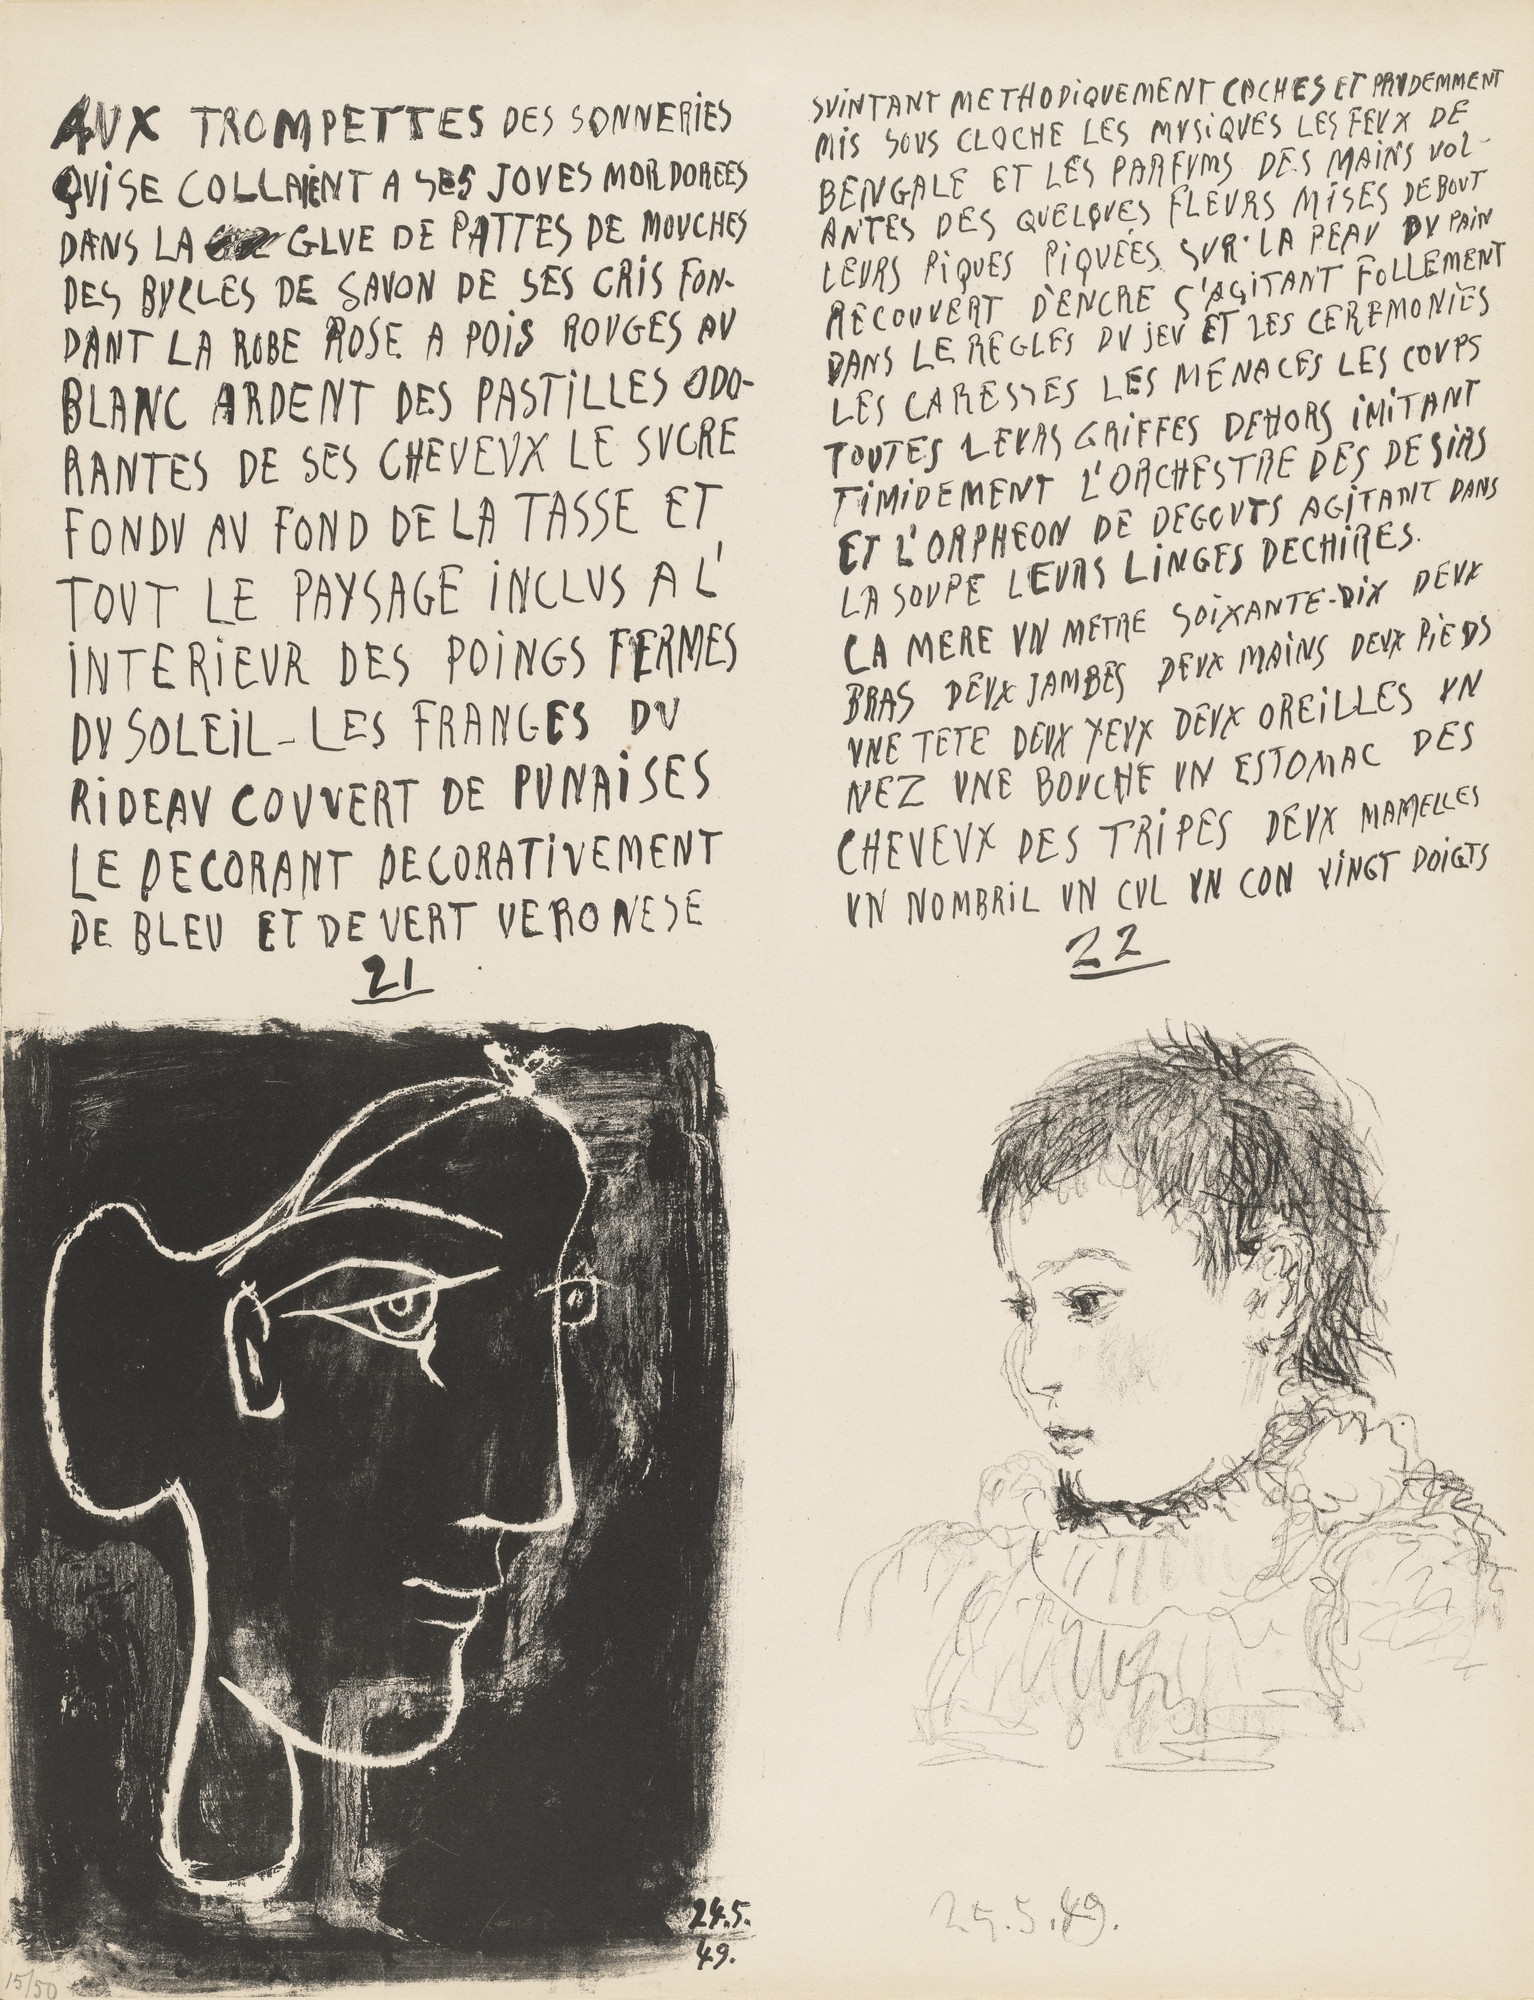 AUX TROMPETTES DES SONNERIES
QUi SE COLLAiENT A SES JOUES MORDOREES
DANS LA GLUE DE PATTES DE MOUCHES
DES BULLES DE SAVON DE SES CRiS FON-
DANT LA ROBE ROSE A POiS ROUGES AU
BLANC ARDENT DES PASTiLLES ODO-
RANTES DE SES CHEVEUX LE SUCRE
FONDU AU FOND DE LA TASSE ET
TOUT LE PAYSAGE iNCLUS A L'
iNTERiEUR DES POiNGS FERMES
DU SOLEiL - LES FRANGES DU
RiDEAU COUVERT DE PUNAiSES
LE DECORANT DECORATiVEMENT
DE BLEU ET DE VERT VERONESE
21
SUiNTANT METHODiQUEMENT CACHES ET PRUDEMMENT
MiS SOUS CLOCHE LES MUSiQUES LES FEUX DE
BENGALE ET LES PARFUMS DES MAiNS VOL-
ANTES DES QUELQUES FLEURS MiSES DEBOUT
LEURS PiQUES PiQUÉES SUR LA PEAU DU PAiN
RECOUVERT D'ENCRE S'AGiTANT FOLLEMENT
DANS LE REGLES DU JEU ET LES CEREMONiES
LES CARESSES LES MENACES LES COUPS
TOUTES LEURS GRiFFES DEHORS iMiTANT
TiMiDEMENT L'ORCHESTRE DES DESiRS
ET L'ORPHEON DE DEGOUTS AGiTANT DANS
LA SOUPE LEURS LiNGES DECHiRES.
LA MERE UN METRE SOiXANTE-DiX DEUX
BRAS DEUX JAMBES DEUX MAiNS DEUX PiEDS
UNE TETE DEUX YEUX DEUX OREiLLES UN
NEZ UNE BOUCHE UN ESTOMAC DES
CHEVEUX DES TRiPES DEUX MAMELLES
UN NOMBRiL UN CUL UN CON ViNGT DOiGTS
22
24.5.
49.
24.5.49.
15/50